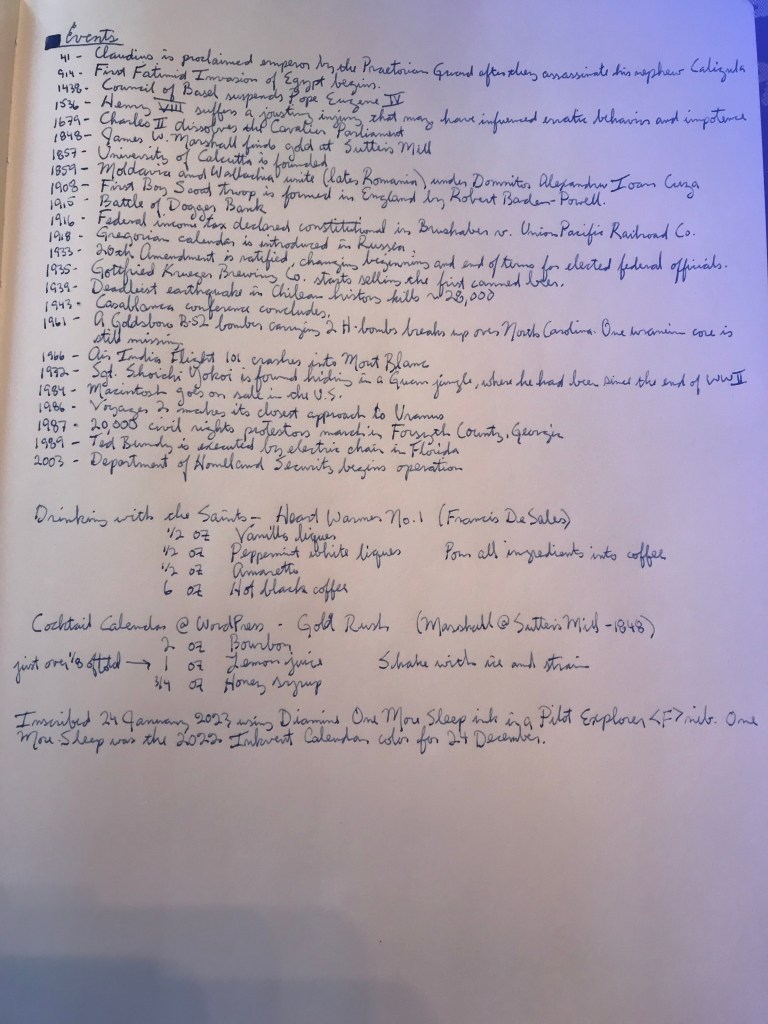 Events
41 - Claudius is proclaimed emperor by the Praetorian Guard after they assassinate his nephew Caligula
914 - First Fatimid Invasion of Egypt begins.
1438 - Council of Basel suspends Pope Eugene IV
1536 - Henry VIII suffers a jousting injury that may have influenced erratic behavior and impotence
1679 - Charles II dissolves the Cavalier Parliament
1848 - James W. Marshall finds gold at Sutter's Mill
1857 - University of Calcutta is founded
1859 - Moldavia and Wallachia unite (later Romania) under Domnitor Alexandru Ioan Cuza
1908 - First Boy Scout troop is formed in England by Robert Baden-Powell.
1915 - Battle of Dogger Bank
1916 - Federal income tax declared constitutional in Brushaber v. Union Pacific Railroad Co.
1918 - Gregorian calendar is introduced in Russia.
1933 - 20th Amendment is ratified, changing beginning and end of terms for elected federal officials.
1935 - Gottfried Krueger Brewing Co. starts selling the first canned beer.
1939 - Deadliest earthquake in Chilean history kills ~28,000
1943 - Casablanca conference concludes.
1961 - A Goldsboro B-52 bomber carrying 2 H-bombs breaks up over North Carolina. One uranium core is
still missing.
1966 - Air India Flight 101 crashes into Mont Blanc
1972 - Sgt. Shoichi Yokoi is found hiding in a Guam jungle, where he had been since the end of WWII
1984 - Macintosh goes on sale in the U.S.
1986 - Voyager 2 makes its closest approach to Uranus
1987 - 20,000 civil rights protestors march in Forsyth County, Georgia
1989 - Ted Bundy is executed by electric chair in Florida
2003 - Department of Homeland Security begins operation
Drinking with the Saints - Heart Warmer No. 1 (Francis DeSales)
1/2 oz Vanilla liqueur
1/2 oz Peppermint white liqueur Pour all ingredients into coffee
1/2 oz Amaretto
6 oz Hot black coffee
Cocktail Calendar @ WordPress - Gold Rush (Marshall @ Sutter's Mill - 1848)
2 oz Bourbon
just over 1/8 → 1 oz Lemon juice Shake with ice and strain
3/4 oz Honey syrup
Inscribed 24 January 2023 using Diamine One More Sleep ink in a Pilot Explorer <F> nib. One
More Sleep was the 2022 Inkvent Calendar color for 24 December.